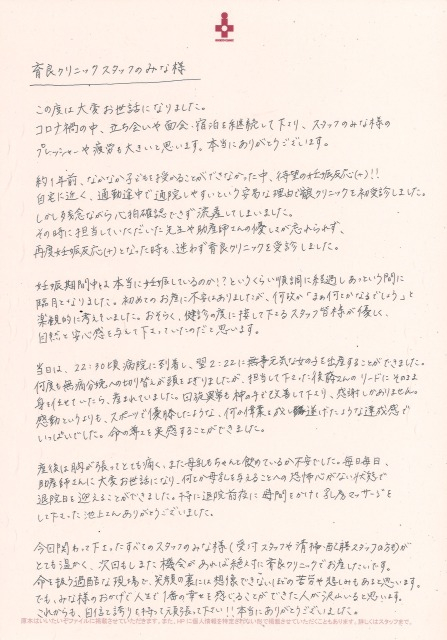 育良クリニックスタッフのみな様
この度は大変お世話になりました。
コロナ禍の中、立ち会いや面会・宿泊を継続して下さり、スタッフのみな様の
プレッシャーや疲労も大きいと思います。本当にありがとうございます。
約1年前、なかなか子どもを授かることができなかった中、待望の妊娠反応(+)!!
自宅に近く、通勤途中で通院しやすいという安易な理由で育良クリニックを初受診しました。
しかし残念ながら心拍確認できず流産してしまいました。
その時に担当していただいた先生や助産師さんの優しさが忘れられず、
再度妊娠反応(+)となった時も、迷わず育良クリニックを受診しました。
妊娠期間中は本当に妊娠しているのか!?というくらい順調に経過しあっという間に
臨月となりました。初めてのお産に不安はありましたが、何故か「まぁ何とかなるでしょう」と
楽観的に考えていました。おそらく、健診の度に接して下さるスタッフ皆様が優しく、
自然と安心感を与えて下さっていたのだと思います。
当日は、22:30頃病院に到着し、翌2:22に無事元気な女の子を出産することができました。
何度も無痛分娩への切り替えが頭をよぎりましたが、担当して下さった後藤さんのリードにそのまま
身を任せていたら、産まれていました。回旋異常も
感動というよりも、スポーツで優勝したような、何か偉業を成し遂げたような達成感で
いっぱいでした。命の尊さを実感することができました。
産後は胸が張ってとても痛く、また母乳もちゃんと飲めているか不安でした。毎日毎日、
助産師さんに大変お世話になり、何とか母乳を与えることへの恐怖心がない状態で
退院日を迎えることができました。特に退院前夜に時間をかけて乳房マッサージを
して下さった池上さんありがとうございました。
今回関わって下さったすべてのスタッフのみな様(受付スタッフや清掃・配膳スタッフの方も)が
とても温かく、次回もしまた機会があれば絶対に育良クリニックでお産したいです。
命を扱う過酷な現場で、笑顔の裏には想像できないほどの苦労や悲しみもあると思います。
でも、みな様のおかげで人生で1番の幸せを感じることができた人が沢山いると思います。
これからも、自信と誇りを持って頑張って下さい!!本当にありがとうございました。
原本はいいたいぞファイルに掲載させていただきます。また、HPに個人情報を特定されない形で掲載させていただくこともあります。詳しくはスタッフまで。